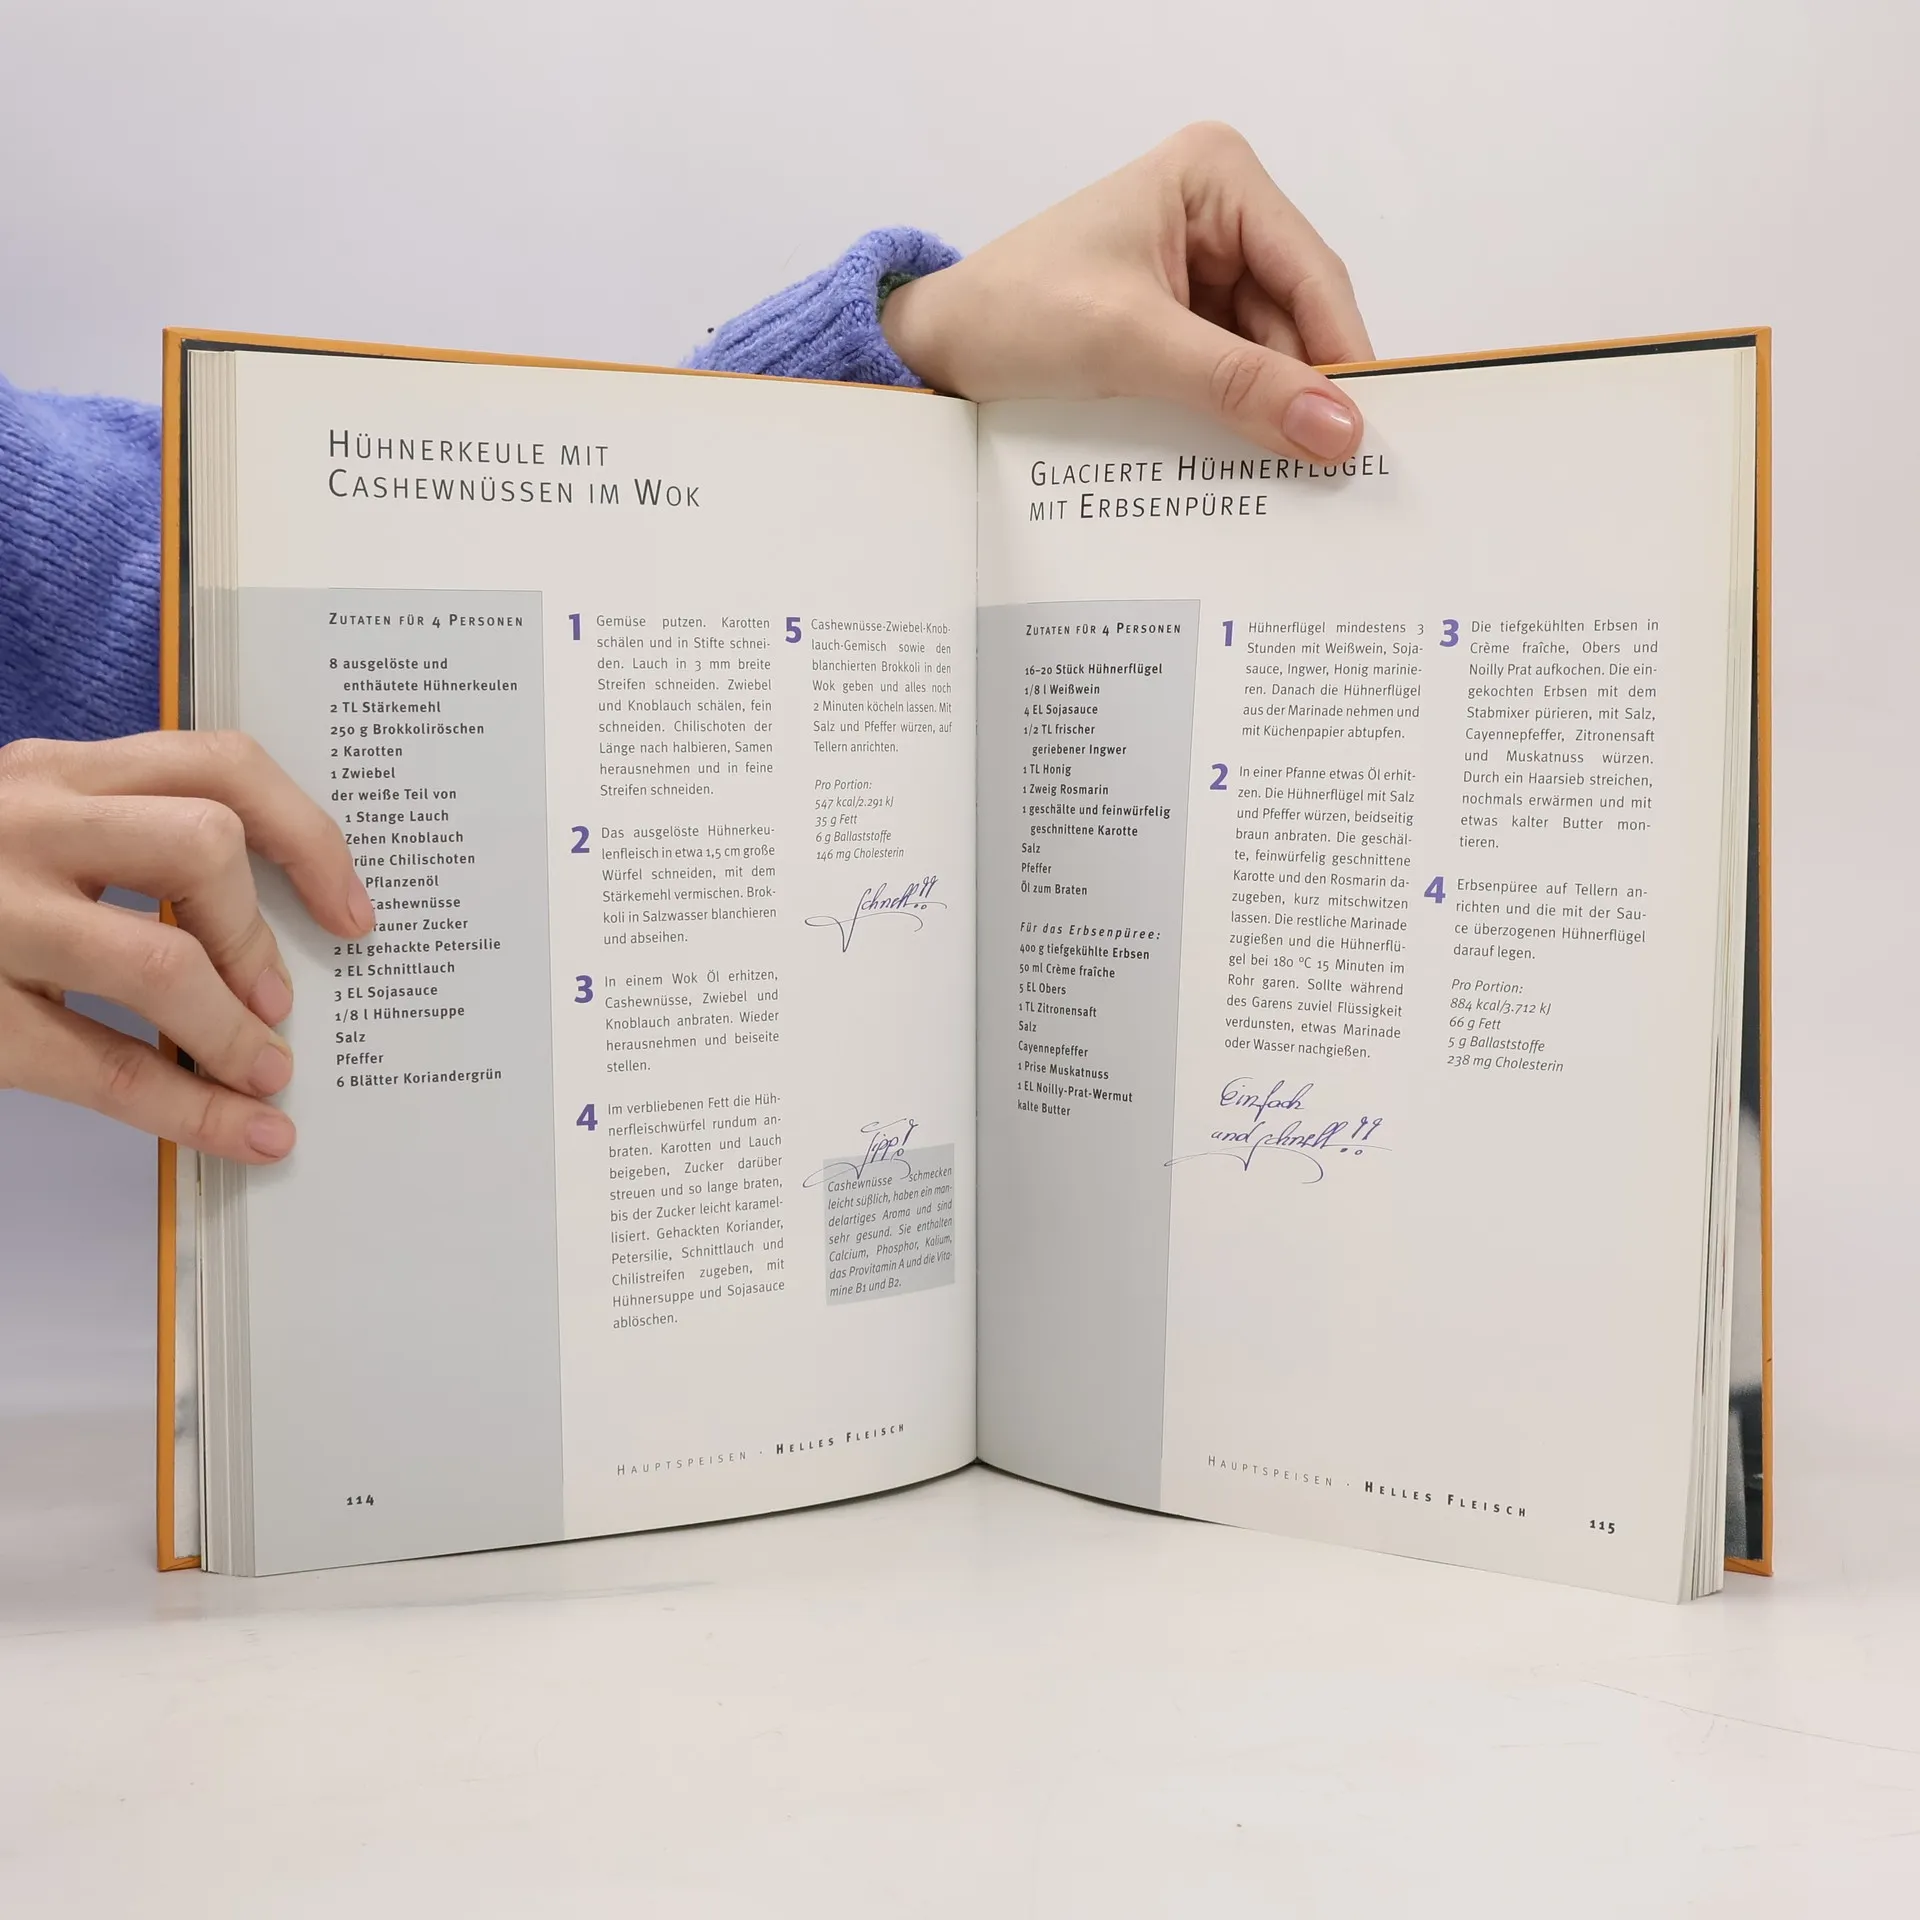 HÜHNERKEULE MIT
CASHEWNÜSSEN IM WOK
ZUTATEN FÜR 4 PERSONEN
8 ausgelöste und
enthäutete Hühnerkeulen
2 TL Stärkemehl
250 g Brokkoliröschen
2 Karotten
1 Zwiebel
der weiße Teil von
1 Stange Lauch
Zehen Knoblauch
rüne Chilischoten
Pflanzenöl
Cashewnüsse
rauner Zucker
2 EL gehackte Petersilie
2 EL Schnittlauch
3 EL Sojasauce
1/8 l Hühnersuppe
Salz
Pfeffer
6 Blätter Koriandergrün
1 Gemüse putzen. Karotten
schälen und in Stifte schnei-
den. Lauch in 3 mm breite
Streifen schneiden. Zwiebel
und Knoblauch schälen, fein
schneiden. Chilischoten der
Länge nach halbieren, Samen
herausnehmen und in feine
Streifen schneiden.
2 Das ausgelöste Hühnerkeu-
lenfleisch in etwa 1,5 cm große
Würfel schneiden, mit dem
Stärkemehl vermischen. Brok-
koli in Salzwasser blanchieren
und abseihen.
3 In einem Wok Öl erhitzen,
Cashewnüsse, Zwiebel und
Knoblauch anbraten. Wieder
herausnehmen und beiseite
stellen.
4 Im verbliebenen Fett die Hüh-
nerfleischwürfel rundum an-
braten. Karotten und Lauch
beigeben, Zucker darüber
streuen und so lange braten,
bis der Zucker leicht karamel-
lisiert. Gehackten Koriander,
Petersilie, Schnittlauch und
Chilistreifen zugeben, mit
Hühnersuppe und Sojasauce
ablöschen.
5 Cashewnüsse-Zwiebel-Knob-
lauch-Gemisch sowie den
blanchierten Brokkoli in den
Wok geben und alles noch
2 Minuten köcheln lassen. Mit
Salz und Pfeffer würzen, auf
Tellern anrichten.
Pro Portion:
547 kcal/2.291 kJ
35 g Fett
6 g Ballaststoffe
146 mg Cholesterin
Schnell!!
Tipp!
Cashewnüsse schmecken
leicht süßlich, haben ein man-
delartiges Aroma und sind
sehr gesund. Sie enthalten
Calcium, Phosphor, Kalium,
das Provitamin A und die Vita-
mine B1 und B2.
HAUPTSPEISEN · HELLES FLEISCH
114
GLACIERTE HÜHNERFLÜGEL
MIT ERBSENPÜREE
ZUTATEN FÜR 4 PERSONEN
16–20 Stück Hühnerflügel
1/8 l Weißwein
4 EL Sojasauce
1/2 TL frischer
geriebener Ingwer
1 TL Honig
1 Zweig Rosmarin
1 geschälte und feinwürfelig
geschnittene Karotte
Salz
Pfeffer
Öl zum Braten
Für das Erbsenpüree:
400 g tiefgekühlte Erbsen
50 ml Crème fraîche
5 EL Obers
1 TL Zitronensaft
Salz
Cayennepfeffer
1 Prise Muskatnuss
1 EL Noilly-Prat-Wermut
kalte Butter
1 Hühnerflügel mindestens 3
Stunden mit Weißwein, Soja-
sauce, Ingwer, Honig marinie-
ren. Danach die Hühnerflügel
aus der Marinade nehmen und
mit Küchenpapier abtupfen.
2 In einer Pfanne etwas Öl erhit-
zen. Die Hühnerflügel mit Salz
und Pfeffer würzen, beidseitig
braun anbraten. Die geschäl-
te, feinwürfelig geschnittene
Karotte und den Rosmarin da-
zugeben, kurz mitschwitzen
lassen. Die restliche Marinade
zugießen und die Hühnerflü-
gel bei 180 °C 15 Minuten im
Rohr garen. Sollte während
des Garens zuviel Flüssigkeit
verdunsten, etwas Marinade
oder Wasser nachgießen.
Einfach
und schnell!!
3 Die tiefgekühlten Erbsen in
Crème fraîche, Obers und
Noilly Prat aufkochen. Die ein-
gekochten Erbsen mit dem
Stabmixer pürieren, mit Salz,
Cayennepfeffer, Zitronensaft
und Muskatnuss würzen.
Durch ein Haarsieb streichen,
nochmals erwärmen und mit
etwas kalter Butter mon-
tieren.
4 Erbsenpüree auf Tellern an-
richten und die mit der Sau-
ce überzogenen Hühnerflügel
darauf legen.
Pro Portion:
884 kcal/3.712 kJ
66 g Fett
5 g Ballaststoffe
238 mg Cholesterin
HAUPTSPEISEN · HELLES FLEISCH
115